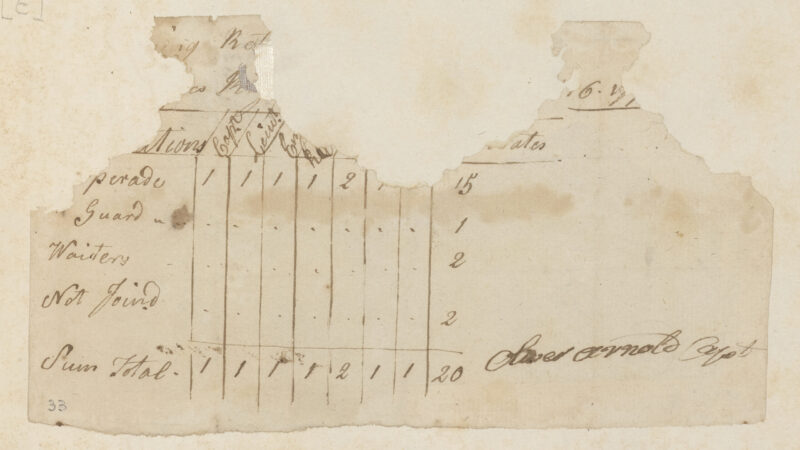 [E]
ing Ret
es R
6. 17
tions Capt Lieut En
perade 1 1 1 1 2 15
Guard 1
Waiters 2
Not Joind 2
Sum Total 1 1 1 1 2 1 1 20
Oliver Arnold Capt
33